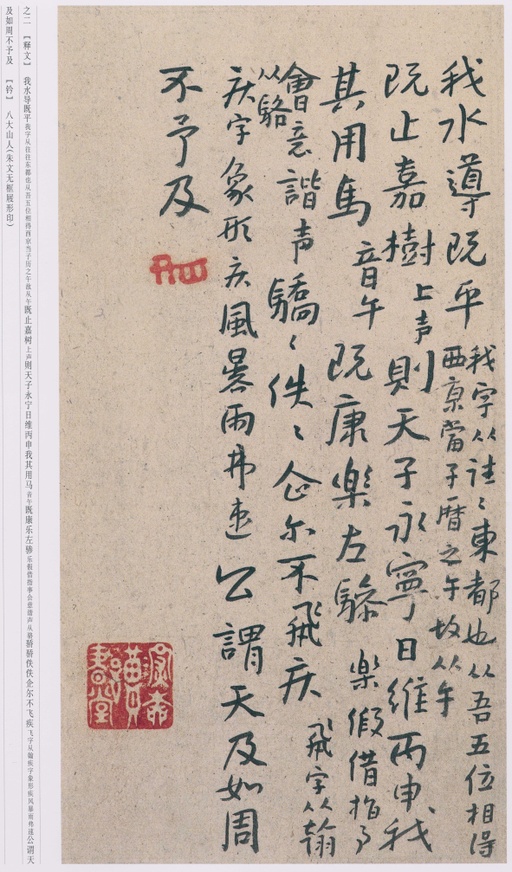 我水導既平 我字从往〻東都也从吾五位相得
西京當子曆之午故从午
既止嘉樹上声則天子永寧日維丙申我
其用馬音午既康樂左驂 樂假借指事
會意諧声 从駱 驕〻佚〻企尔不飛疾 飛字从翰
疾字象形疾風暴雨弗速公謂天及如周
不予及
之二 【释文】 我水导既平我字从往往东都也从吾五位相得西京当子历之午故从午既止嘉树上声则天子永宁日维丙申我其用马音午既康乐左骖乐假借指事会意谐声从骆骄骄佚佚企尔不飞疾飞字从翰疾字象形疾风暴雨弗速公谓天
及如周不予及 【钤】 八大山人(朱文无框屐形印)